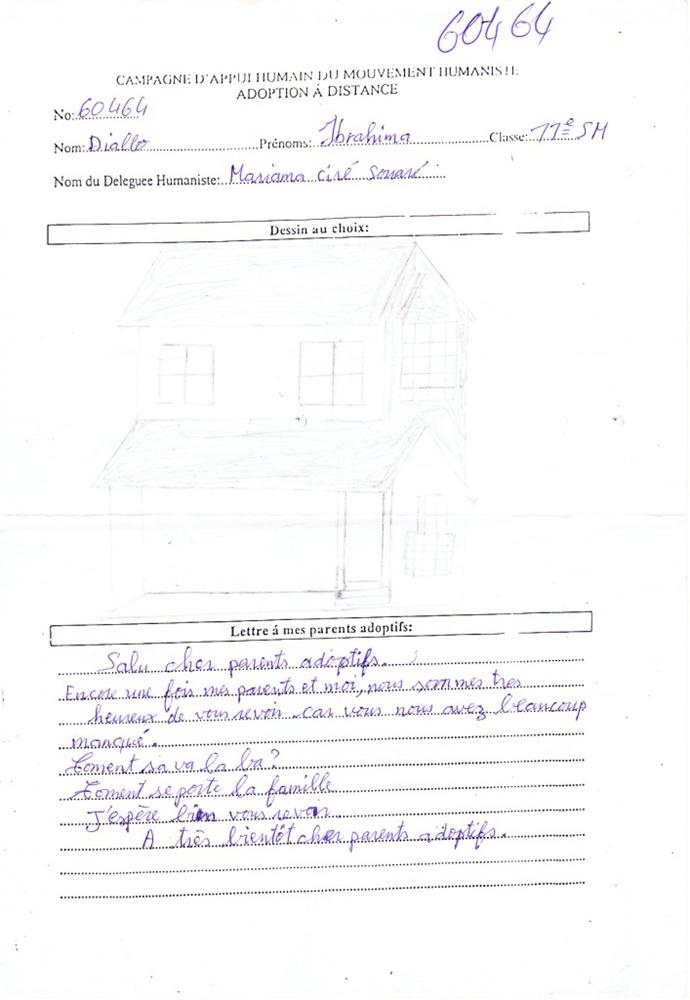 60464
CAMPAGNE D'APPUI HUMAIN DU MOUVEMENT HUMANISTE
ADOPTION Á DISTANCE
No: 60464
Nom: Diallo Prénoms: Ibrahima Classe: 11e SM
Nom du Deleguee Humaniste: Mariama ciré souaré
Dessin au choix:
Lettre á mes parents adoptifs:
Salu cher parents adoptifs.
Encore une fois mes parents et moi, nous sommes tres
heureux de vous revoir car vous nous avez beaucoup
manqué.
Coment sa va la ba?
Coment se porte la famille
J'espère bien vous revoir.
A très bientôt cher parents adoptifs.